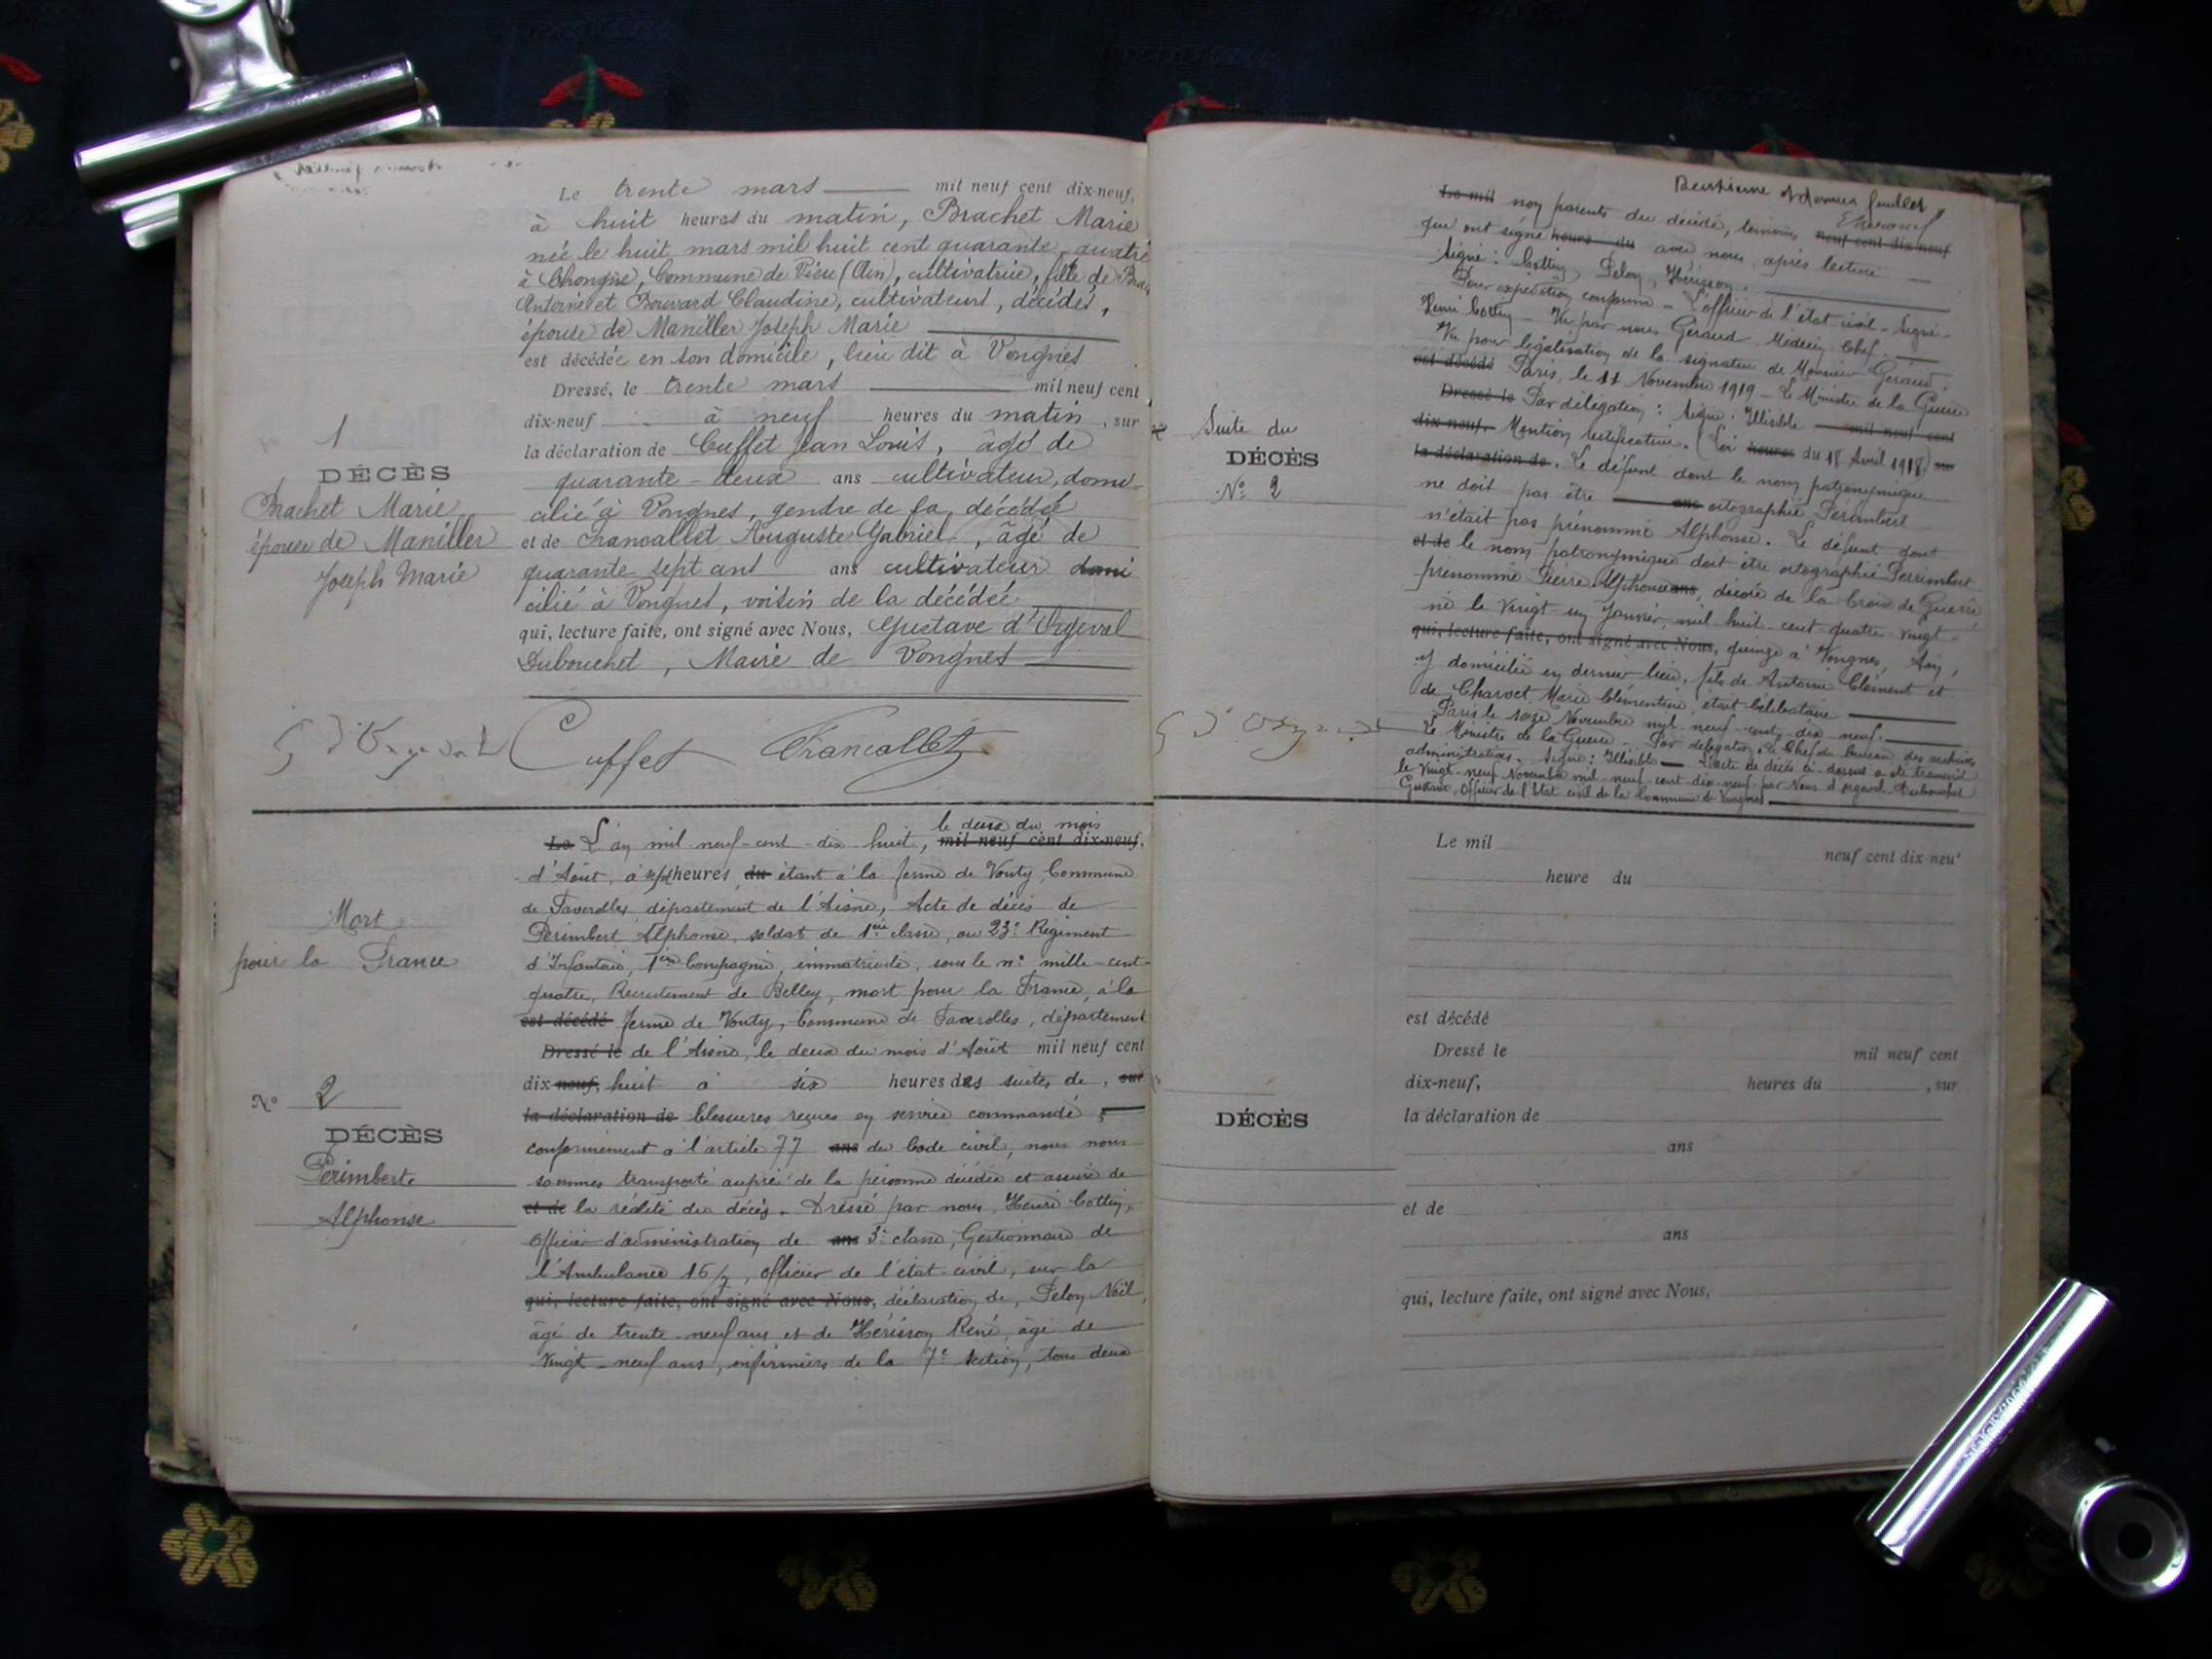 Le trente mars mil neuf cent dix-neuf,
à huit heures du matin, Brachet Marie
née le huit mars mil huit cent quarante-quatre
à Chongne, Commune de Vieu (Ain), cultivatrice, fille de
Antoine et Bouvard Claudine, cultivateurs, décédés,
épouse de Maniller Joseph Marie
est décédée en son domicile, lieu dit à Vongnes
Dressé, le trente mars mil neuf cent
dix-neuf à neuf heures du matin, sur
la déclaration de Cuffet Jean Louis, âgé de
quarante-deux ans cultivateur, domi-
cilié à Vongnes, gendre de la décédée
et de Francallet Auguste Gabriel, âgé de
quarante sept ans ans cultivateur domi
cilié à Vongnes, voisin de la décédée
qui, lecture faite, ont signé avec Nous, Gustave d'Orgeval
Dubouchet, Maire de Vongnes
1
DÉCÈS
Brachet Marie
épouse de Maniller
Joseph Marie
G d'Orgeval Cuffet Francallet
le deux du mois
Le L'an mil neuf-cent-dix-huit, mil neuf cent dix-neuf,
d'Août, à sept heures du étant à la ferme de Vouty, Commune
de Faverolles, département de l'Aisne, Acte de décès de
Perimbert Alphonse, soldat de 1ère classe, au 23e Régiment
d'Infanterie, 1ère Compagnie, immatriculé, sous le n° mille-cent-
quatre, Recrutement de Belley, mort pour la France, à la
est décédé ferme de Vouty, Commune de Faverolles, département
Dressé le de l'Aisne, le deux du mois d'Août mil neuf cent
dix neuf, huit à six heures des suites de, sur
la déclaration de blessures reçues en service commandé,
conformément à l'article 77 ans du Code civil, nous nous
sommes transporté auprès de la personne décédée et assuré de
et de la réalité du décès. Dressé par nous, Henri Cottin,
Officier d'administration de ans 3e classe, Gestionnaire de
l'Ambulance 16/7, officier de l'état-civil, sur la
qui, lecture faite, ont signé avec Nous, déclaration de, Pelon Noël,
âgé de trente-neuf ans et de Hérisson René, âgé de
vingt-neuf ans, infirmiers de la 7e section, tous deux
Mort
pour la France
N° 2
DÉCÈS
Perimbert
Alphonse
Deuxième et dernier feuillet
Le mil non parents du décédé, témoins neuf cent dix-neuf
qui ont signé heure du avec nous, après lecture
Signé: Cottin, Pelon, Hérisson.
Pour expédition conforme - L'officier de l'état civil - Signé -
Henri Cottin - Vu par nous Géraud Médecin Chef.
Vu pour légalisation de la signature de Monsieur Géraud.
est décédé Paris, le 11 Novembre 1919 - Le Ministre de la Guerre
Dressé le Par délégation: Signé: Illisible mil neuf cent
dix-neuf. Mention rectificative. (Loi heures du 18 Avril 1918) sur
la déclaration de. Le défunt dont le nom patronymique
ne doit pas être ans ortographié Perimbert
n'était pas prénommé Alphonse. Le défunt dont
et de le nom patronymique doit être ortographié Perrimbert
prénommé Pierre Alphonse ans, décoré de la Croix de Guerre,
né le vingt-un Janvier, mil-huit-cent-quatre-vingt-
qui, lecture faite, ont signé avec Nous, quinze à Vongnes, Ain,
y domicilié en dernier lieu, fils de Antoine Clément et
de Charvet Marie Clémentine, était célibataire
Paris le seize Novembre mil neuf-cent-dix-neuf.
Le Ministre de la Guerre - Par délégation, le Chef du bureau des archives
administratives. Signé: Illisible - L'acte de décès ci-dessus a été transcrit
le vingt-neuf Novembre mil-neuf-cent-dix-neuf par Nous d'Orgeval-Dubouchet
Gustave, Officier de l'état civil de la Commune de Vongnes.
Suite du
DÉCÈS
N° 2
G d'Orgeval
Le mil neuf cent dix-neuf
heure du
est décédé
Dressé le mil neuf cent
dix-neuf, heures du , sur
la déclaration de
ans
et de
ans
qui, lecture faite, ont signé avec Nous,
DÉCÈS